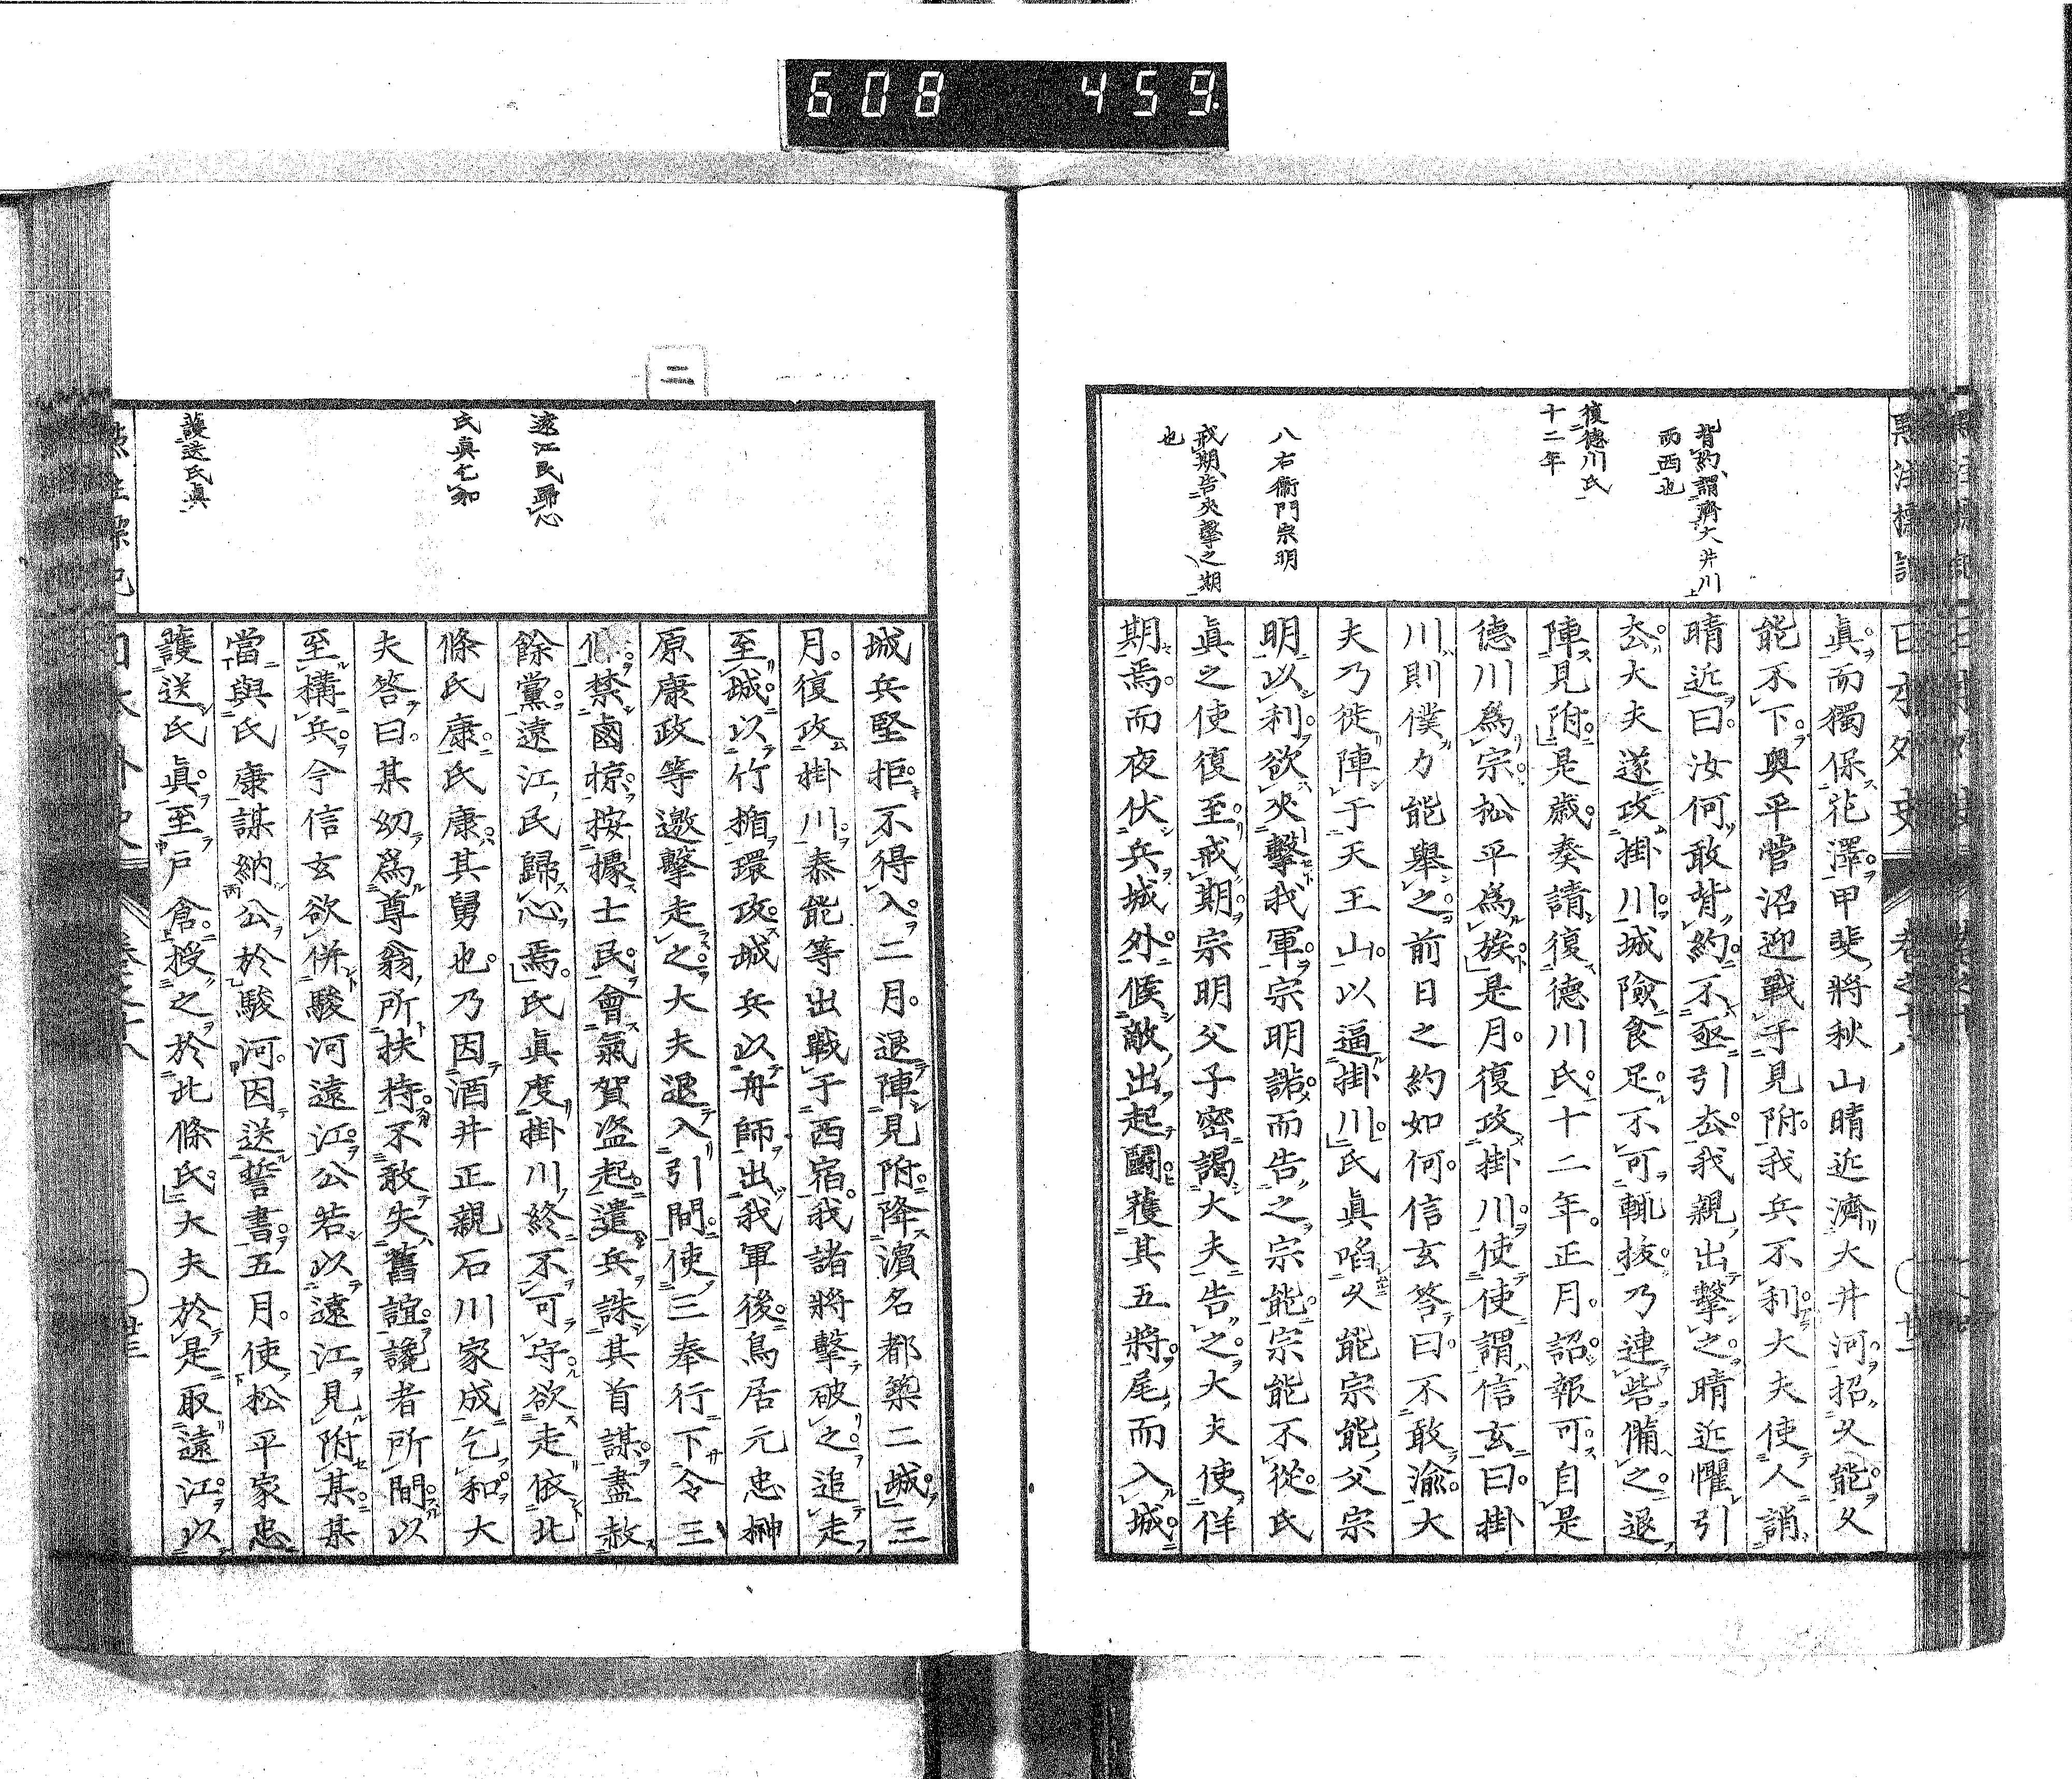 608 459.
點注標記
日本外史
卷之十八
背約、謂濟大井川
而西也
復德川氏
十二年
八右衞門宗明
戒期、告夾擊之期
也
眞而獨保花澤甲斐將秋山晴近濟大井河招久能久
能不下奧平菅沼迎戰于見附我兵不利大夫使人誚
晴近曰汝何敢背約不亟引去我親出擊之晴近懼引
去大夫遂攻掛川城險食足不可輒拔乃連砦備之退
陣見附是歲奏請復德川氏十二年正月詔報可自是
德川爲宗松平爲族是月復攻掛川使使謂信玄曰掛
川則僕力能舉之前日之約如何信玄答曰不敢渝大
夫乃徙陣于天王山以逼掛川氏眞啗久能宗能父宗
明以利欲夾擊我軍宗明諾而告之宗能宗能不從氏
眞之使復至戒期宗明父子密謁大夫告之大夫使佯
期焉而夜伏兵城外候敵出起鬭獲其五將尾而入城
二
遠江民歸心
氏眞乞和
護送氏眞
城兵堅拒不得入二月退陣見附降濱名都築二城三
月復攻掛川泰能等出戰于西宿我諸將擊破之追走
至城以竹楯環攻城兵以舟師出我軍後鳥居元忠榊
原康政等邀擊走之大夫退入引間使三奉行下令三
禁鹵掠按據士民會氣賀盜起遣兵誅其首謀盡赦
餘黨遠江民歸心焉氏眞度掛川終不可守欲走依北
條氏康氏康其舅也乃因酒井正親石川家成乞和大
夫答曰某幼爲尊翁所扶持不敢失舊誼讒者所間以
至構兵今信玄欲併駿河遠江公若以遠江見附某某
當與氏康謀納公於駿河因送誓書五月使松平家忠
護送氏眞至戶倉授之於北條氏大夫於是取遠江以